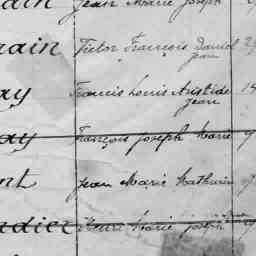 ain Jean Marie Joseph
rain Victor François Daniel 2
Jean
ay Francis Louis Aristide 15
Jean
ay François Joseph Marie 9
nt Jean Marie Mathurin 9
adiec Henri Marie Joseph